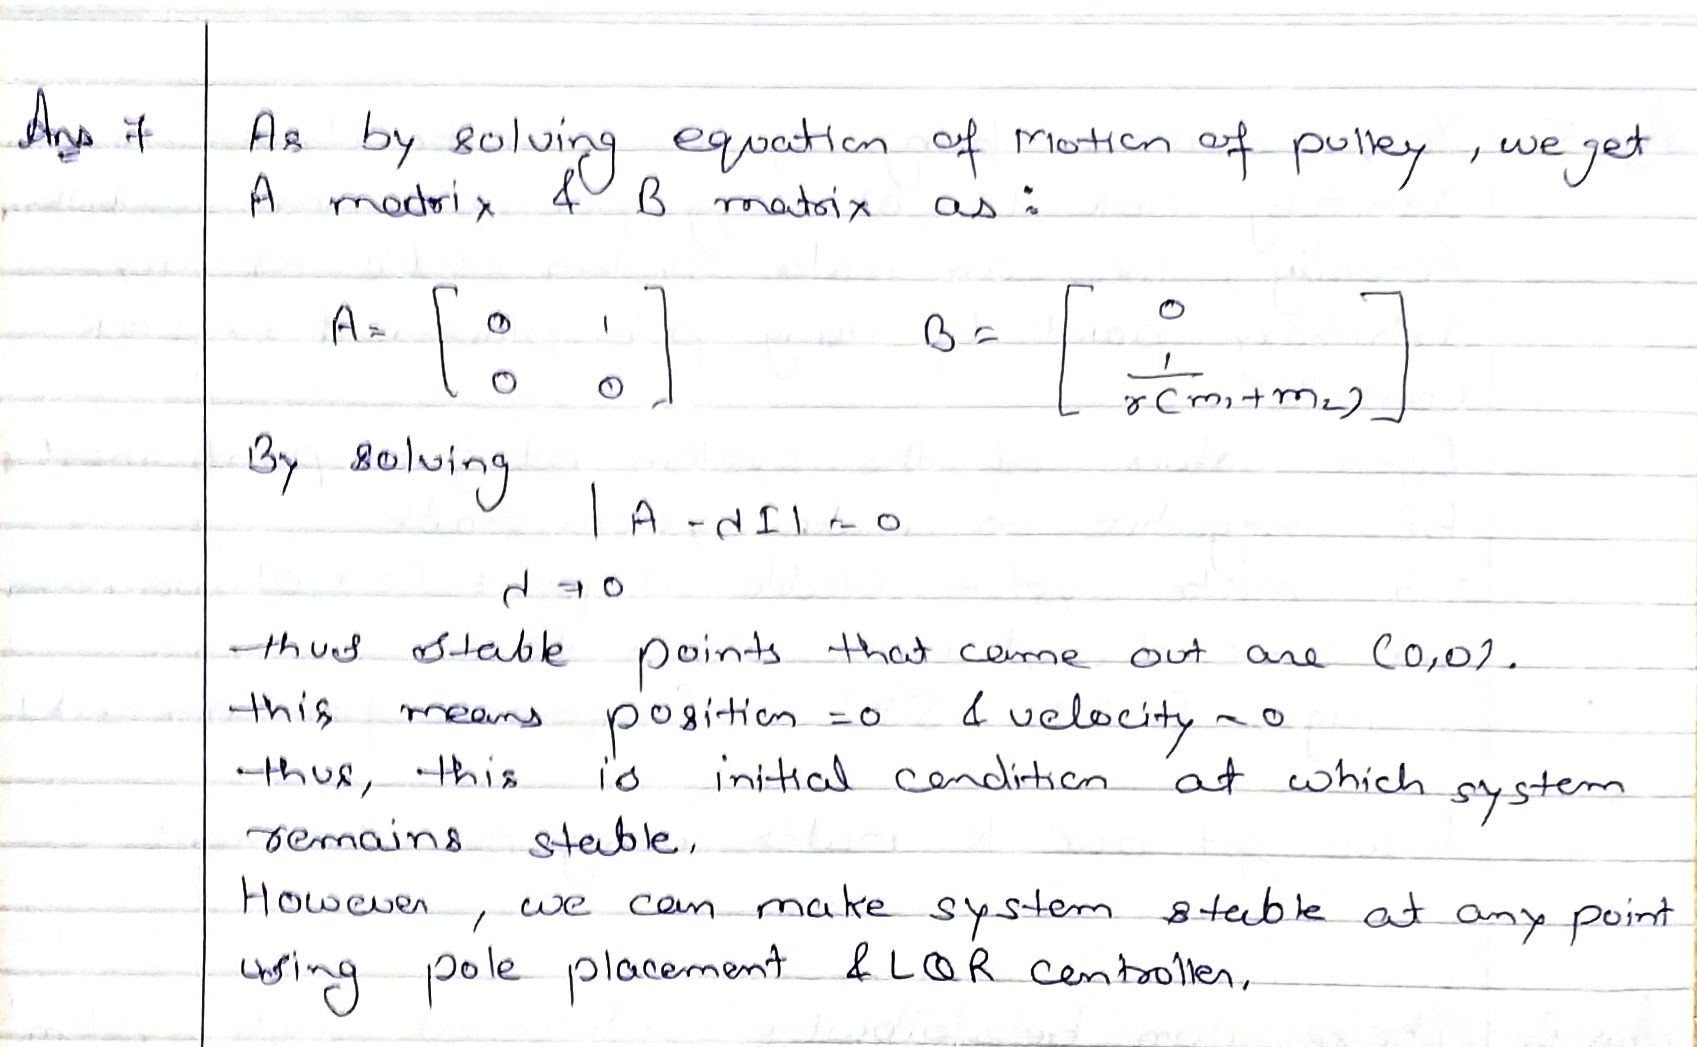 Ans 7 As by solving equation of motion of pulley, we get
A matrix & B matrix as :
A = [ 0 1 B = [ 0
0 0 ] 1/r(m₁+m₂) ]
By solving
|A - λI| = 0
λ = 0
thus stable points that came out are (0,0).
this means position = 0 & velocity = 0
thus, this is initial condition at which system
remains stable.
However, we can make system stable at any point
using pole placement & LQR controller.